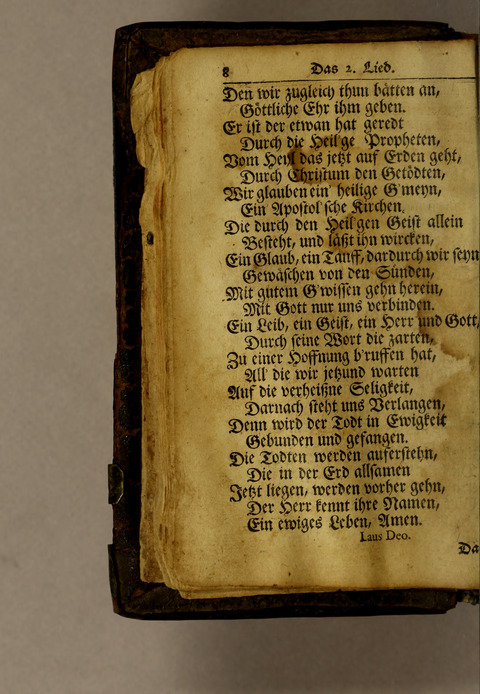 8 Das 2. Lied.
Den wir zugleich thun bätten an,
Göttliche Ehr ihm geben.
Er ist der etwan hat geredt
Durch die Heil'ge Propheten,
Vom Heyl das jetzt auf Erden geht,
Durch Christum den Getödten,
Wir glauben ein' heilige G'meyn,
Ein Apostol'sche Kirchen.
Die durch den Heil'gen Geist allein
Besteht, und läßt ihn wircken,
Ein Glaub, ein Tauff, dardurch wir seyn
Gewäschen von den Sünden,
Mit gutem G'wissen gehn herein,
Mit Gott nur uns verbinden.
Ein Leib, ein Geist, ein Herr und Gott,
Durch seine Wort die zarten,
Zu einer Hoffnung b'ruffen hat,
All' die wir jetzund warten
Auf die verheißne Seligkeit,
Darnach steht uns Verlangen,
Denn wird der Todt in Ewigkeit
Gebunden und gefangen.
Die Todten werden auferstehn,
Die in der Erd allsamen
Jetzt liegen, werden vorher gehn,
Der Herr kennt ihre Namen,
Ein ewiges Leben, Amen.
Laus Deo.
Da